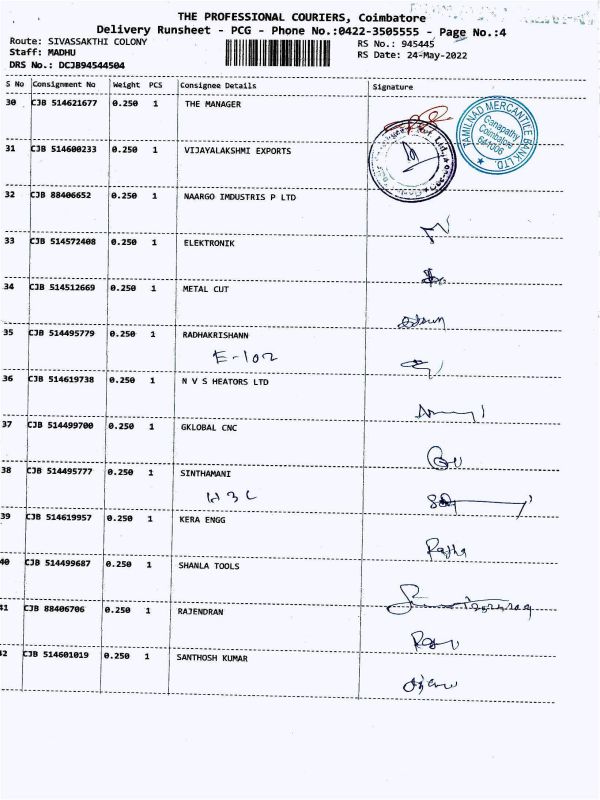 THE PROFESSIONAL COURIERS, Coimbatore
Delivery Runsheet - PCG - Phone No.:0422-3505555 - Page No.:4
Route: SIVASSAKTHI COLONY RS No.: 945445
Staff: MADHU RS Date: 24-May-2022
DRS No.: DCJB94544504
S No Consignment No Weight PCS Consignee Details Signature
30 CJB 514621677 0.250 1 THE MANAGER
TAMILNAD MERCANTILE BANK LTD.
Ganapathy
Coimbatore
641006
31 CJB 514600233 0.250 1 VIJAYALAKSHMI EXPORTS
32 CJB 88406652 0.250 1 NAARGO IMDUSTRIS P LTD
33 CJB 514572408 0.250 1 ELEKTRONIK
34 CJB 514512669 0.250 1 METAL CUT
35 CJB 514495779 0.250 1 RADHAKRISHANN
E-102
36 CJB 514619738 0.250 1 N V S HEATORS LTD
37 CJB 514499700 0.250 1 GKLOBAL CNC
38 CJB 514495777 0.250 1 SINTHAMANI
H3C
39 CJB 514619957 0.250 1 KERA ENGG
40 CJB 514499687 0.250 1 SHANLA TOOLS
41 CJB 88406706 0.250 1 RAJENDRAN
42 CJB 514601019 0.250 1 SANTHOSH KUMAR